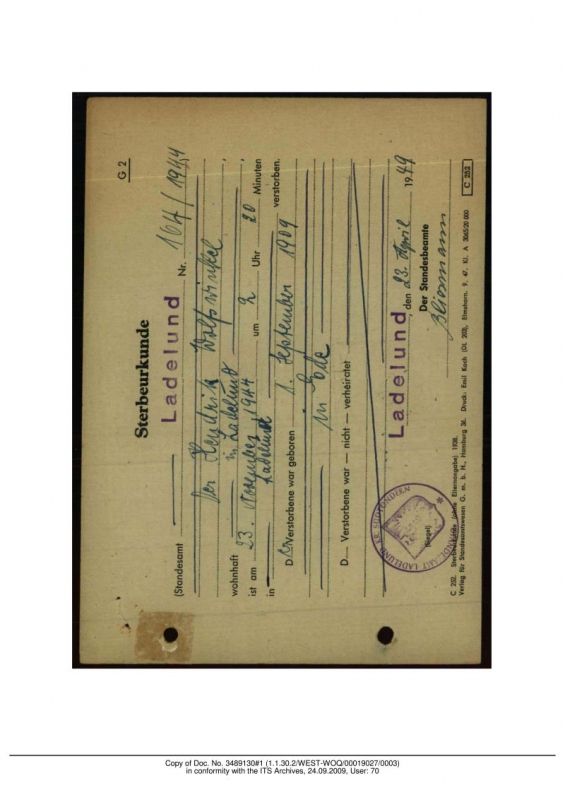 G 2
Sterbeurkunde
(Standesamt Ladelund Nr. 164/1944
Der Hendrik Wolfswinkel
wohnhaft in Ladelund
ist am 23. November 1944 um 2 Uhr 20 Minuten
in Ladelund verstorben.
D er Verstorbene war geboren 1. September 1909
in Ede
D Verstorbene war — nicht — verheiratet
Ladelund, den 23. April 1949
Der Standesbeamte
(Siegel)
STANDESAMT LADELUND KR. SÜDTONDERN
C 252. Sterbeurkunde (ohne Elternangabe) 1938.
Verlag für Standesamtswesen G. m. b. H., Hamburg 36. Druck: Emil Koch (Dt. 203), Elmshorn. 9. 47. Kl. A 3065/20 000
C 252
Copy of Doc. No. 3489130#1 (1.1.30.2/WEST-WOQ/00019027/0003)
in conformity with the ITS Archives, 24.09.2009, User: 70